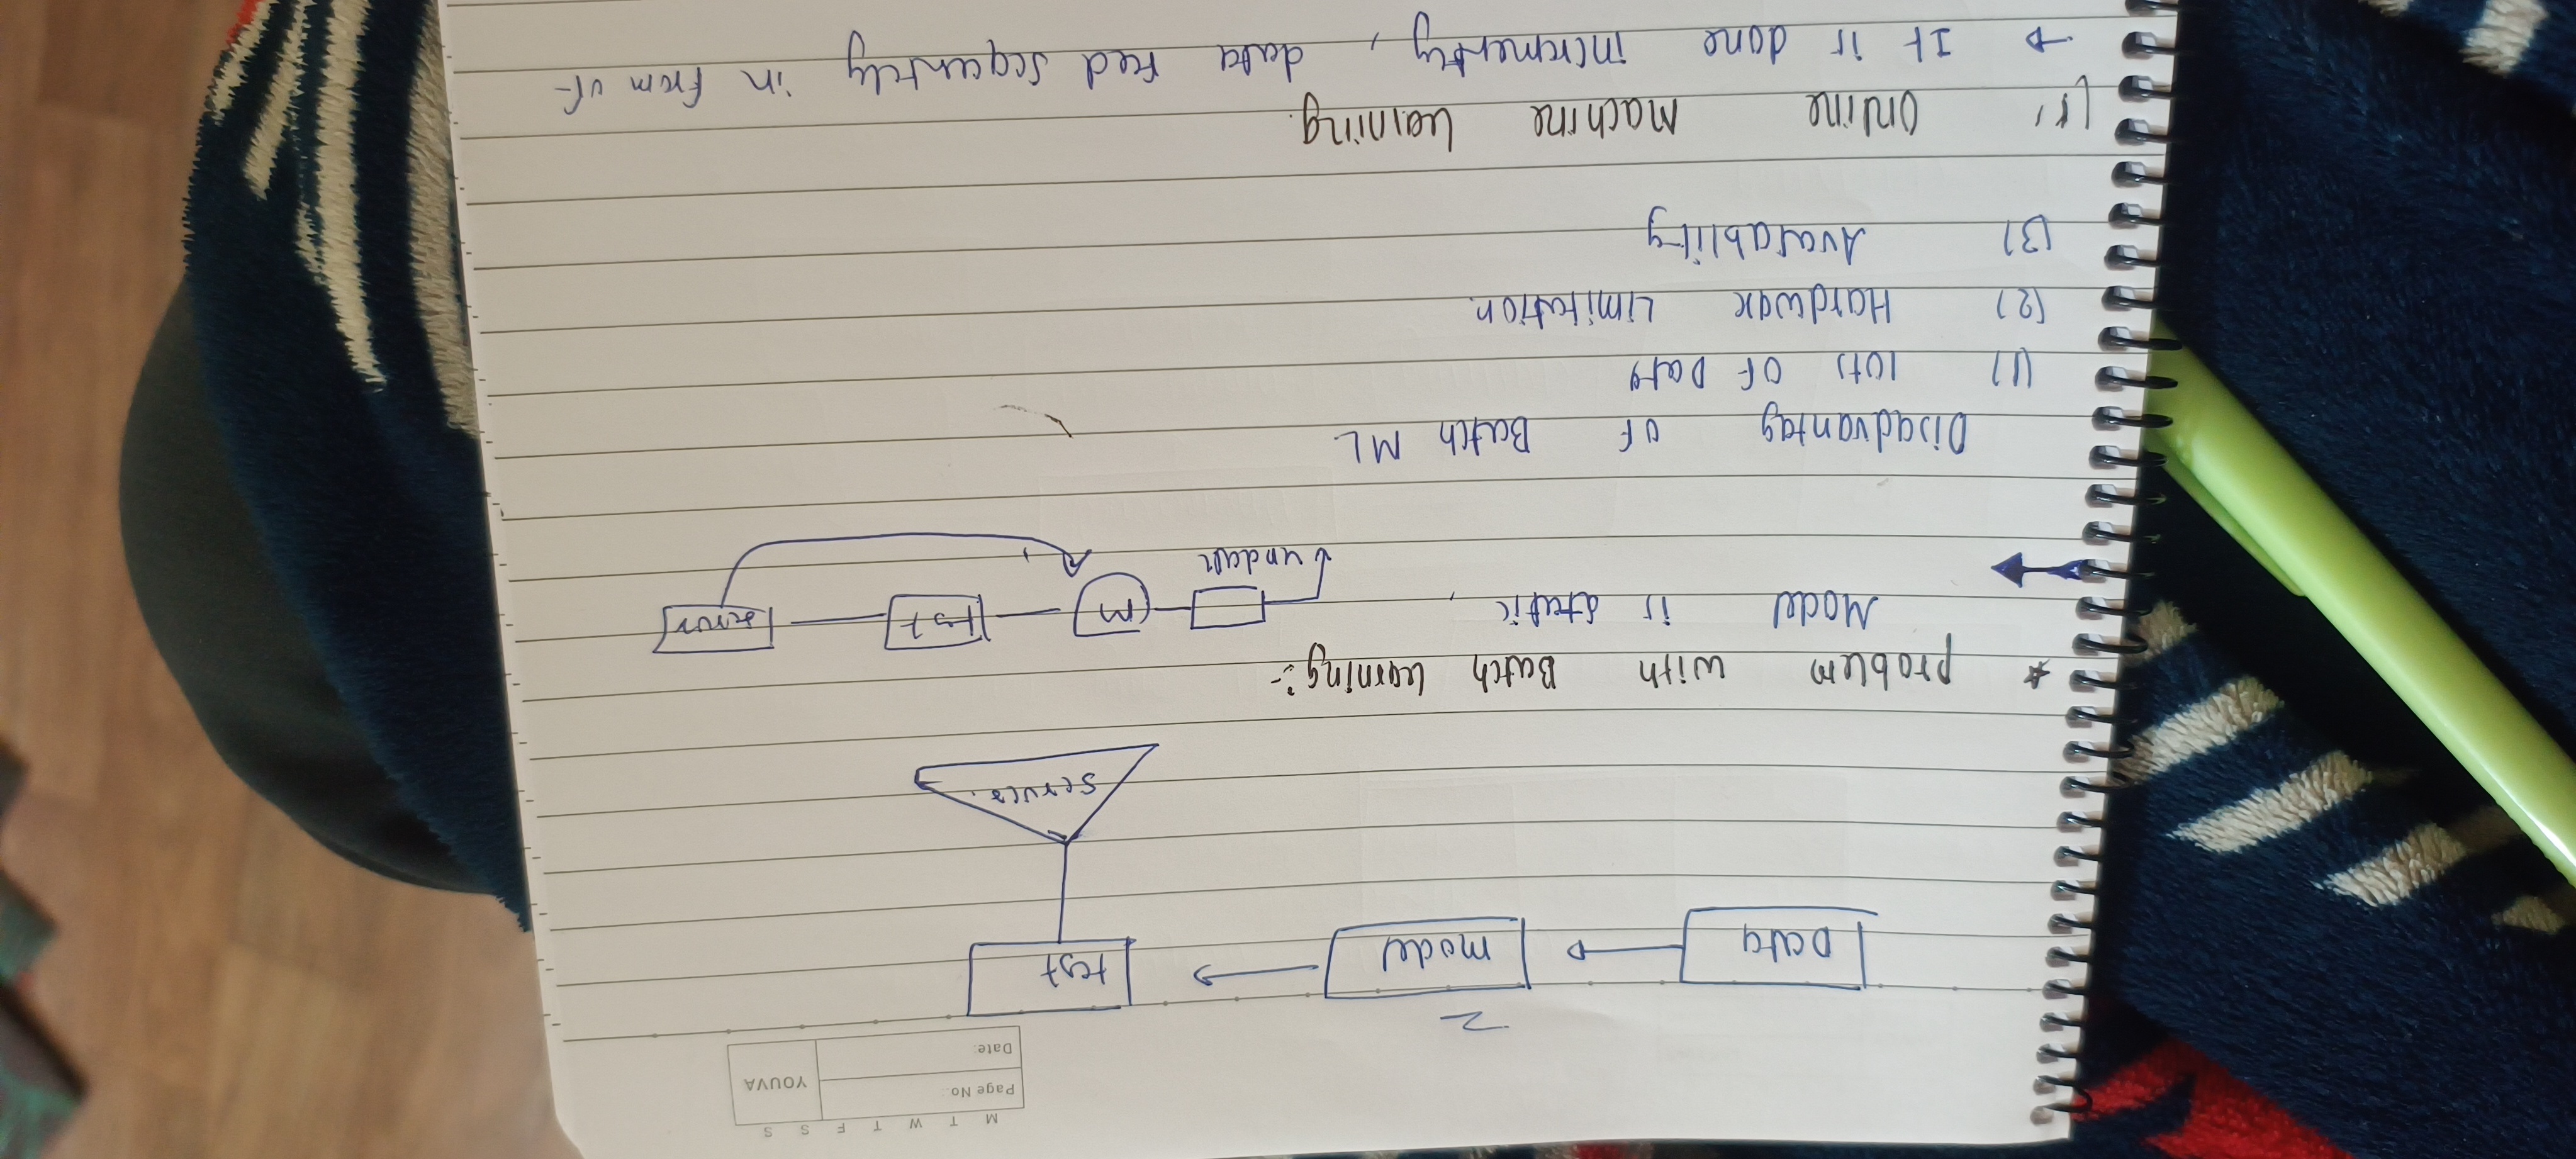 M T W T F S S
Page No.:
Date:
YOUVA
Data
model
test
server
* problem with Batch learning :-
Model is static,
m
test
server
Disadvantag of Batch ML
(1) lots of Data
(2) Hardware Limitation
(3) Availability
Online Machine learning.
→ It is done incrementy, data feed sequently in from of